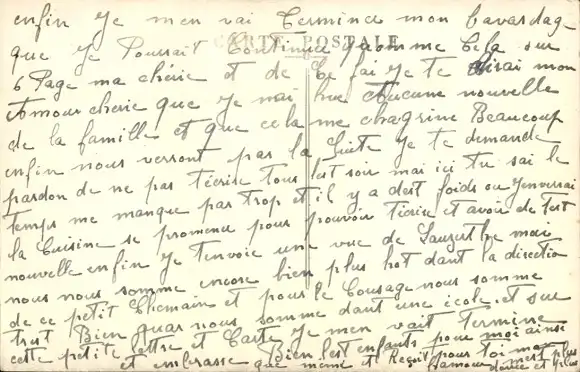 enfin Je men vai Termines mon bavardage
CARTE POSTALE
que Je Pourrait Continue comme Cela sur
6 Page ma chérie et de Ce fai Je te dirai mon
Amour cherie que Je nai hue Aucune nouvelle
de la famille et que cela me chagrine Beaucoup
enfin nous verront par la suite Je te demande
pardon de ne pas t'écrire tous les soir mai ici tu sai le
temps me manque par trop et il y a dest foids ou
la Cuisine se promener pour pouvoir t'écrire et avoir de test
nouvelle enfin Je t'envoie une vue de
nous nous somme encore bien plus hot dant la direction
de ce petit Chemain et pour le Cousage nous somme
trest Bien nous somme dant une école. et sur
cette petite lettre et Carte Je men vait Termine
et embrasse Bien lest enfants pour moi ainsi
que meme et Reçoit pour toi mon
amour mest plus
douce et plus